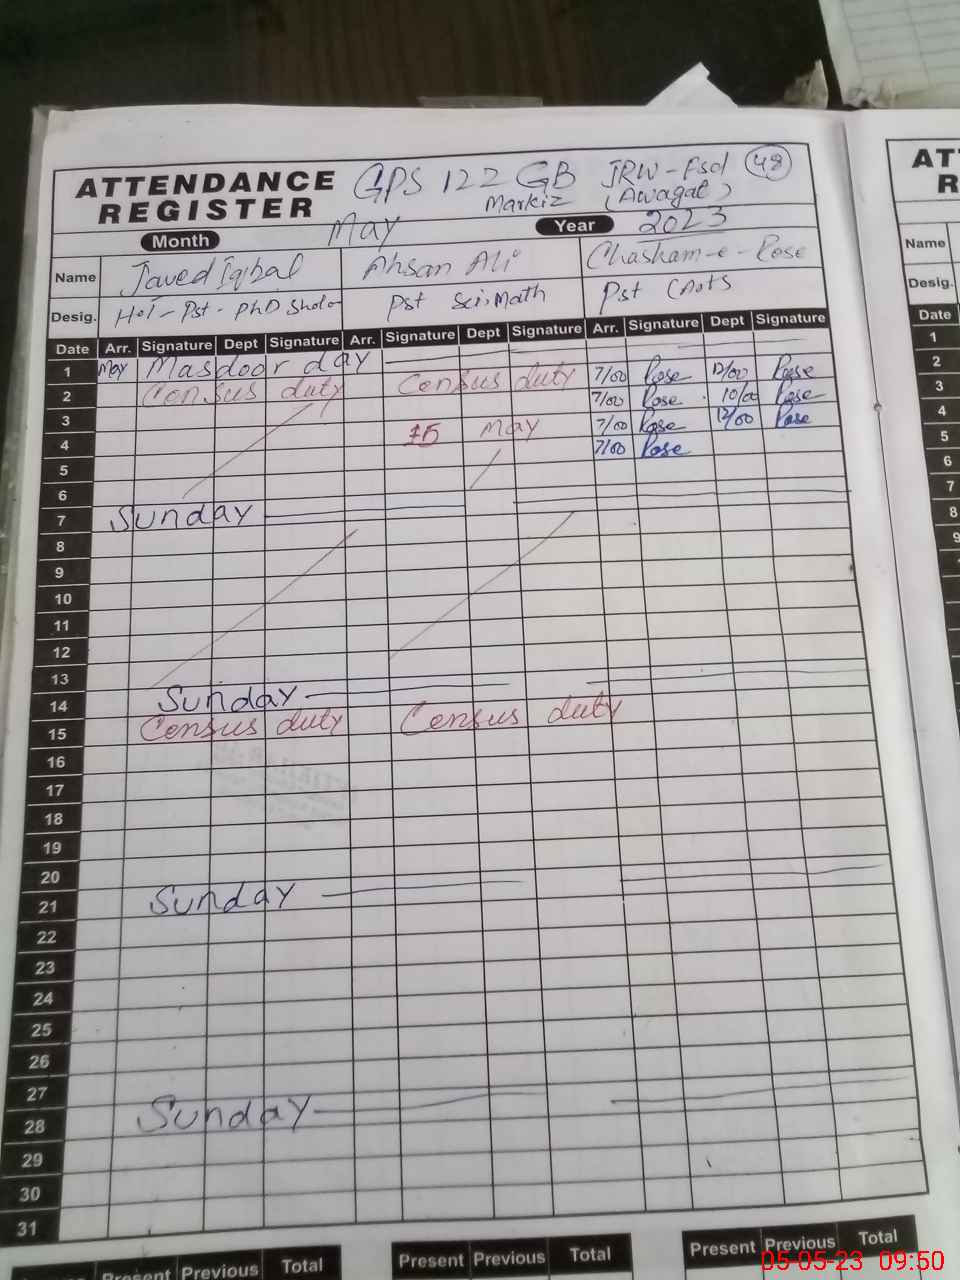 ATTENDANCE REGISTER GPS 122 GB JRW-Fsd 48
Markiz (Awagat)
Month May Year 2023
Name Javed Iqbal Ahsan Ali Chasham-e-Rose
Desig. Pst - PhD Pst Sci, Math Pst
Date Arr. Signature Dept Signature Arr. Signature Dept Signature Arr. Signature Dept Signature
1 May Masdoor day
2 Census duty Census duty 7/00 Rose 12/00 Rose
3 7/00 Rose 10/00 Rose
4 15 May 7/00 Rose 12/00 Rose
5 7/00 Rose
6
7 Sunday
8
9
10
11
12
13
14 Sunday
15 Census duty Census duty
16
17
18
19
20
21 Sunday
22
23
24
25
26
27
28 Sunday
29
30
31
Present Previous Total Present Previous Total Present Previous Total
AT
R
Name
Desig.
Date
1
2
3
4
5
6
7
8
9
05-05-23 09:50